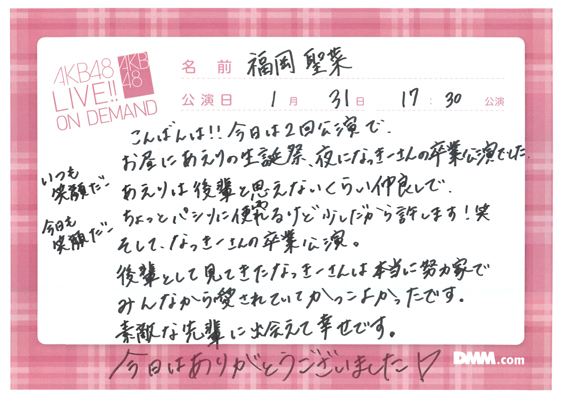 AKB48
LIVE!!
ON DEMAND
AKB
48
名 前 福岡 聖菜
公演日 1月 31日 17:30 公演
こんばんは!!今日は2回公演で、
お昼にあえりの生誕祭、夜になっきーさんの卒業公演でした。
あえりは後輩と思えないくらい仲良しで、
ちょっとパシリに使われるけど少しだから許します!笑
そして、なっきーさんの卒業公演。
後輩として見てきたなっきーさんは本当に努力家で
みんなから愛されていてかっこよかったです。
素敵な先輩に出会えて幸せです。
今日はありがとうございました♡
いつも
笑顔だー
今日も
笑顔だー
DMM.com